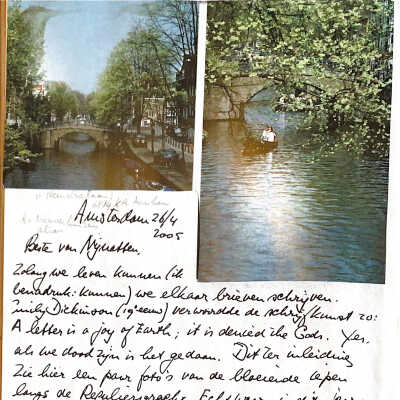 Amsterdam 26/4
2005
Beste van Nijnatten,
Zolang we leven kunnen (ik
benadruk: kunnen) we elkaar brieven schrijven.
Emily Dickinson (19e eeuw) verwoordde de schrijfkunst zo:
A letter is a joy of Earth; it is denied the Gods. Yes.
als we dood zijn is het gedaan. Dit ter inleiding
Zie hier een paar foto's van de bloeiende iepen
langs de Reguliersgracht